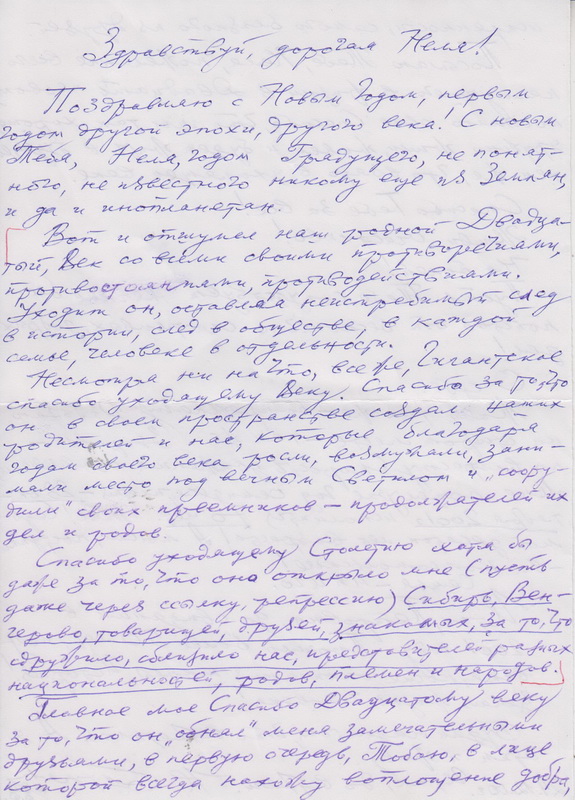 Здравствуй, дорогая Неля!
Поздравляю с Новым Годом, первым
годом другой эпохи, другого века! С новым
Тебя, Неля, годом Грядущего, не понят-
ного, не известного никому еще из Землян,
и да и инопланетан.
Вот и отшумел наш родной Двадца-
тый, Век со всеми своими противоречиями,
противостояниями, противодействиями.
Уходит он, оставляя неистребимый след
в истории, след в обществе, в каждой
семье, человеке в отдельности.
Несмотря ни на что, все же, Гигантское
спасибо уходящему Веку. Спасибо за то, что
он в своем пространстве создал наших
родителей и нас, которые благодаря
годам своего века росли, возмужали, зани-
мали место под вечным Светилом и „соору-
дили" своих преемников – продолжателей их
дел и родов.
Спасибо уходящему Столетию хотя бы
даже за то, что оно открыло мне (пусть
даже через ссылку, репрессию) Сибирь, Вен-
герово, товарищей, друзей, знакомых, за то, что
сдружило, сблизило нас, представителей разных
национальностей, родов, племен и народов.
Главное мое Спасибо Двадцатому веку
за то, что он меня замечательными
друзьями, в первую очередь, Тобою, в лице
которой всегда нахожу воплощение добра,